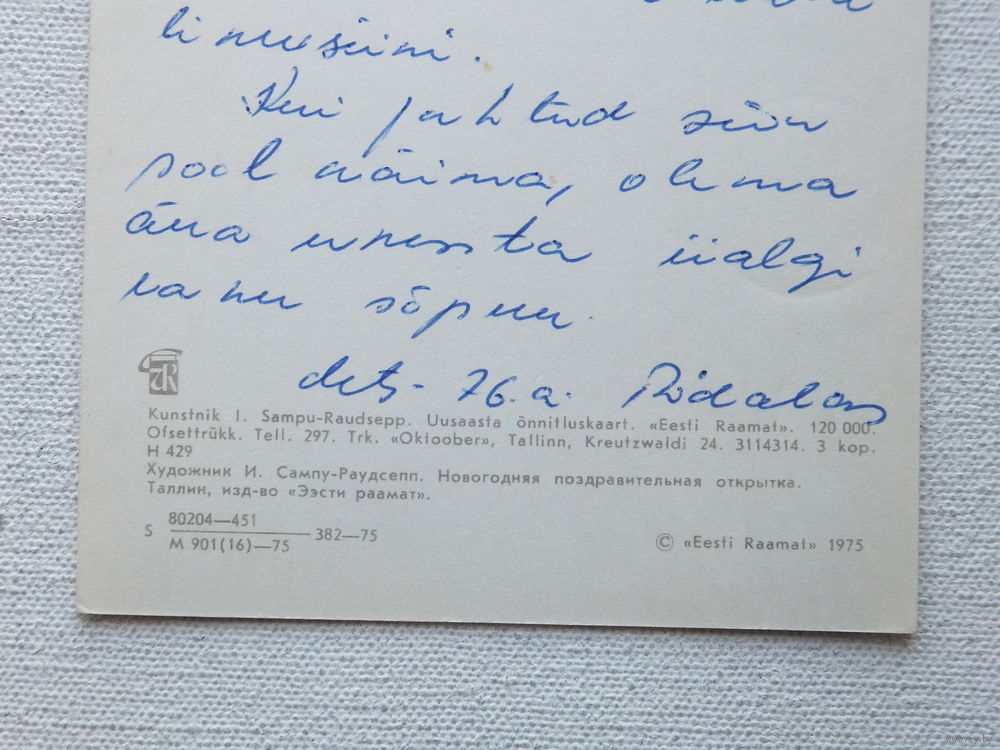 limusiini.
Kui juhtud siin
pool käima, olema
ära unesta iialgi
vanu sõpru.
dets. 76.a. Ridalas
Kunstnik I. Sampu-Raudsepp. Uusaasta õnnitluskaart. «Eesti Raamat». 120 000.
Ofsettrükk. Tell. 297. Trk. «Oktoober», Tallinn, Kreutzwaldi 24. 3114314. 3 kop.
H 429
Художник И. Сампу-Раудсепп. Новогодняя поздравительная открытка.
Таллин, изд-во «Ээсти раамат».
S 80204—451
М 901(16)—75 382—75
© «Eesti Raamat» 1975